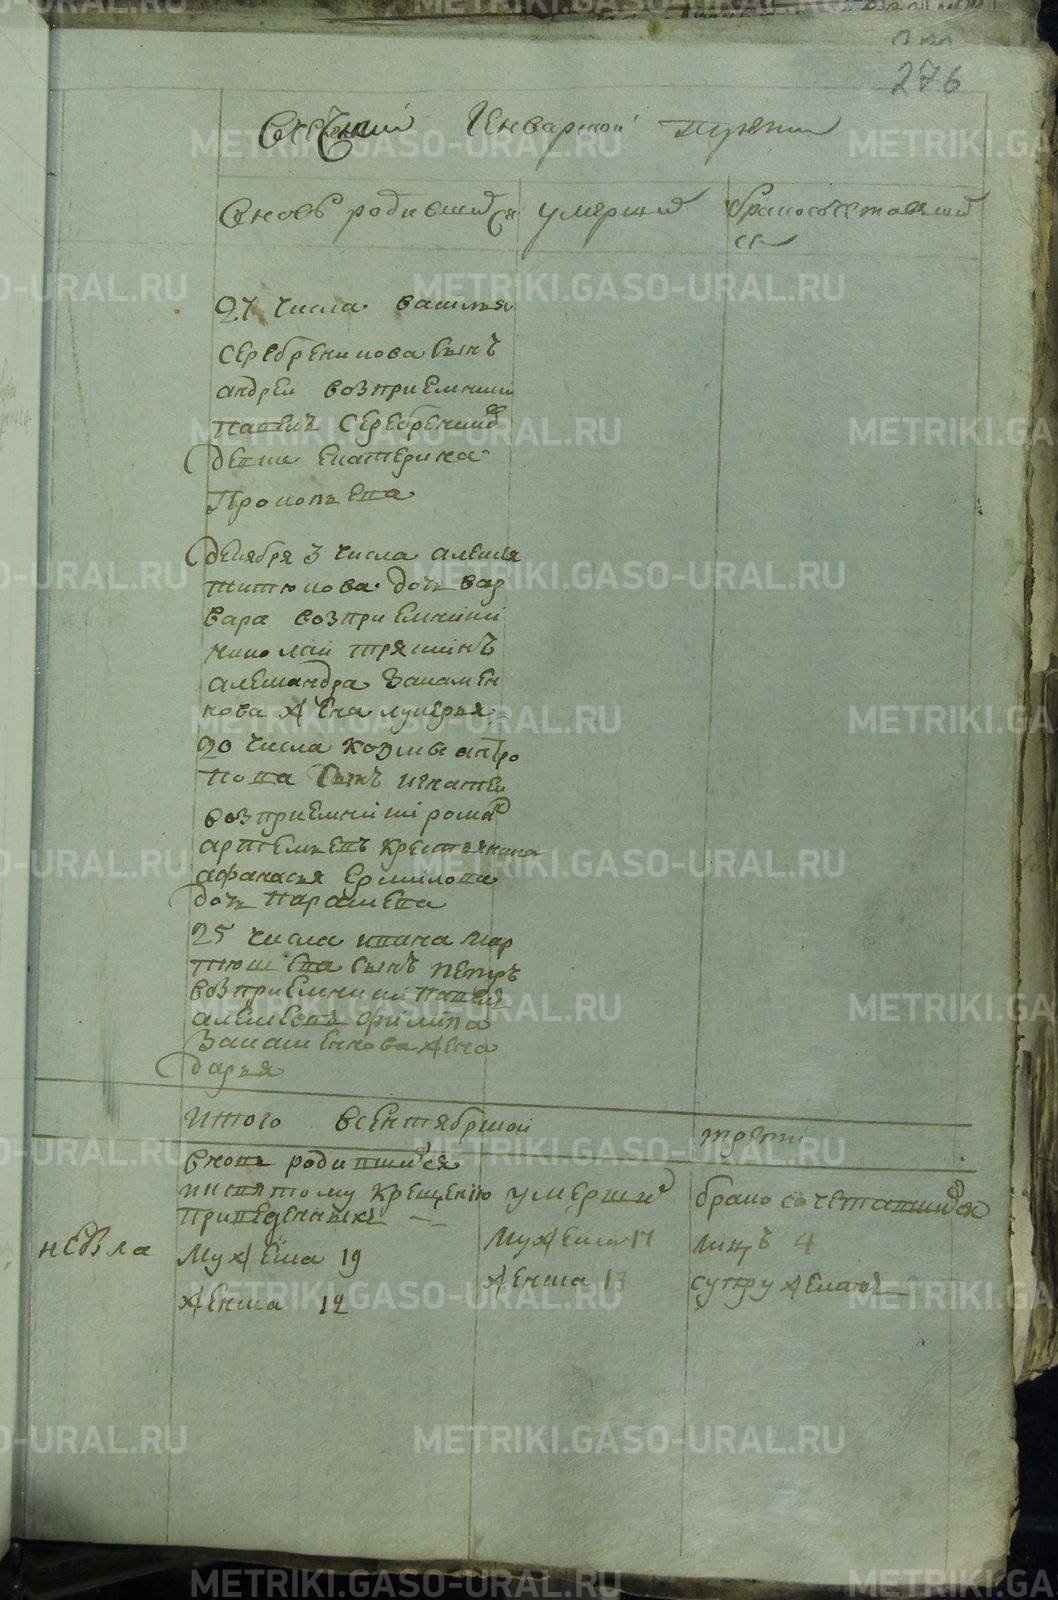 276
Генварской трети
вновь родившихся
умерших
бракосочетавших
ся
27 числа василья
серебреникова сынъ
андреи восприемники
павелъ серебреников
девки екатерина
Прокопьева
декабря 3 числа алексея
титюкова дочь вар
вара восприемники
николаи тряпинъ
александра Банамен
кова жена лукерья
20 числа козмы антро
пова сынъ игнатеи
восприемники роман
артемьевъ крестьянина
афанасья Ермилова
дочь парасковья
25 числа ивана мар
тюшева сынъ петръ
восприемники павел
алексеевъ филипа
Банаменкова жена
дарья
итого всентябрской
трети
вновь родившихся
и ксвятому крещению
приведенныхъ
умерших
бракосочетавшихся
мужеска 19
мужеска 17
лицъ 4
женска 12
женска 13
супружеланъ
METRIKI.GASO-URAL.RU